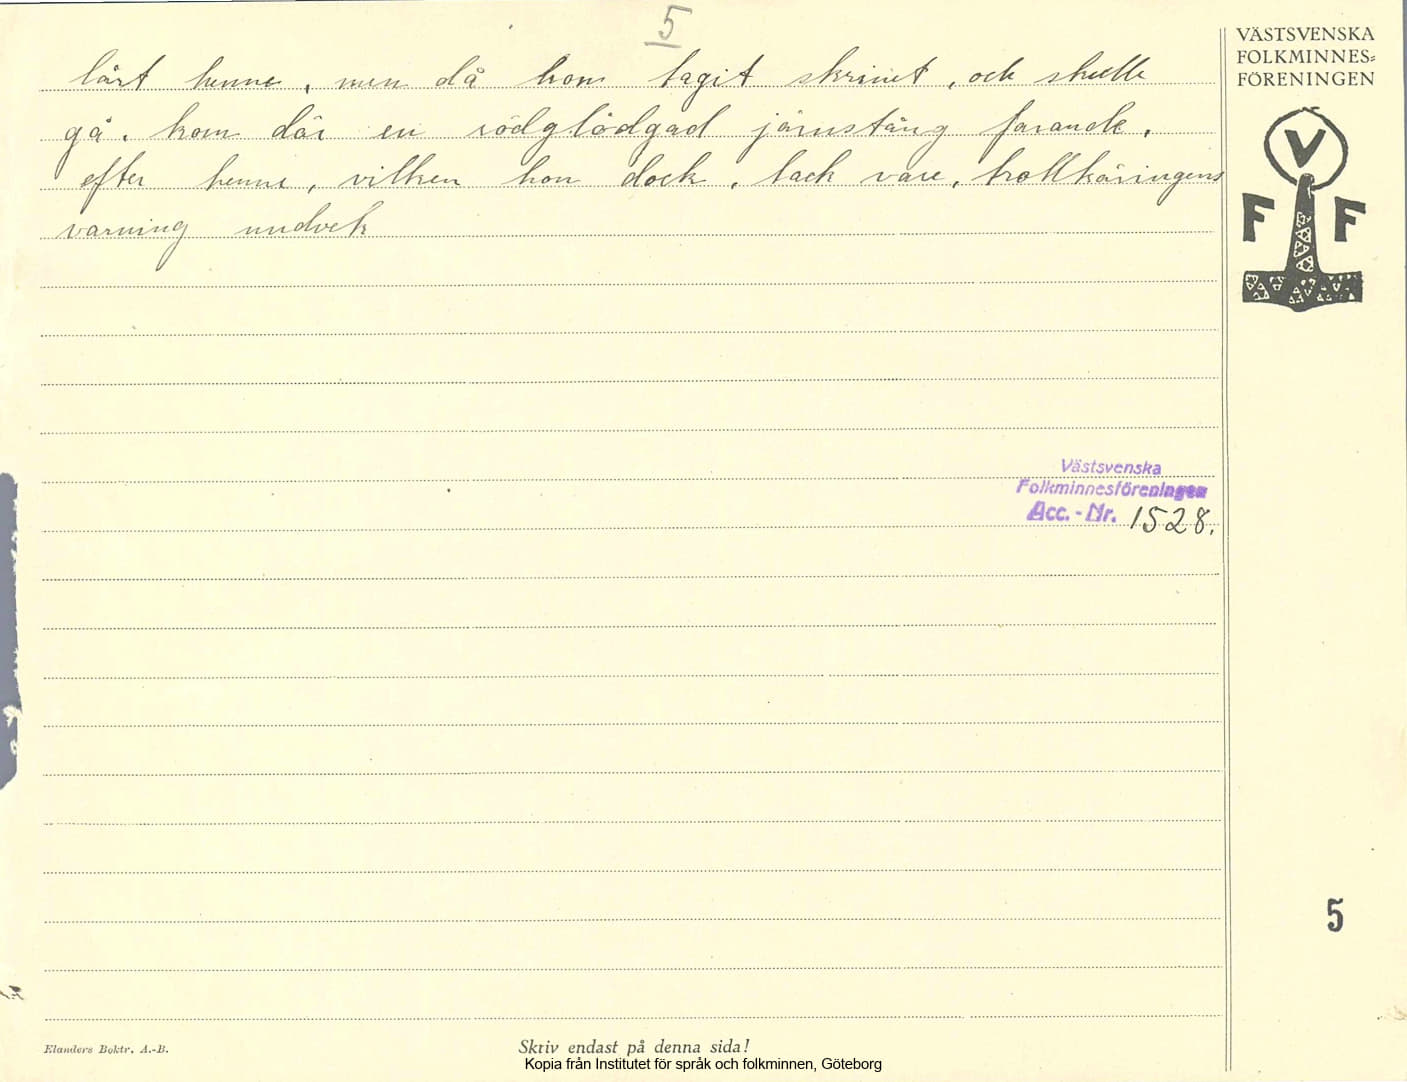 5
VÄSTSVENSKA
FOLKMINNES=
FÖRENINGEN
lärt henne, men då hon tagit skrinet, och skulle
gå, kom där en rödglödgad järnstång farande,
efter henne, vilken hon dock, tack vare, trollkäringens
varning undvek
V
F F
Västsvenska
Folkminnesföreningen
Acc.-Nr. 1528.
5
Elanders Boktr. A.-B.
Skriv endast på denna sida!
Kopia från Institutet för språk och folkminnen, Göteborg